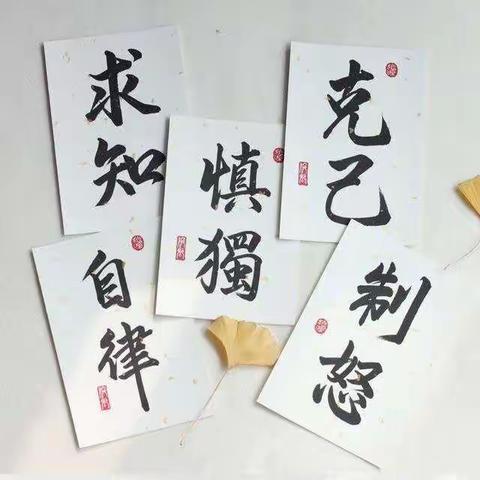 求知
慎獨
克己
自律
制怒